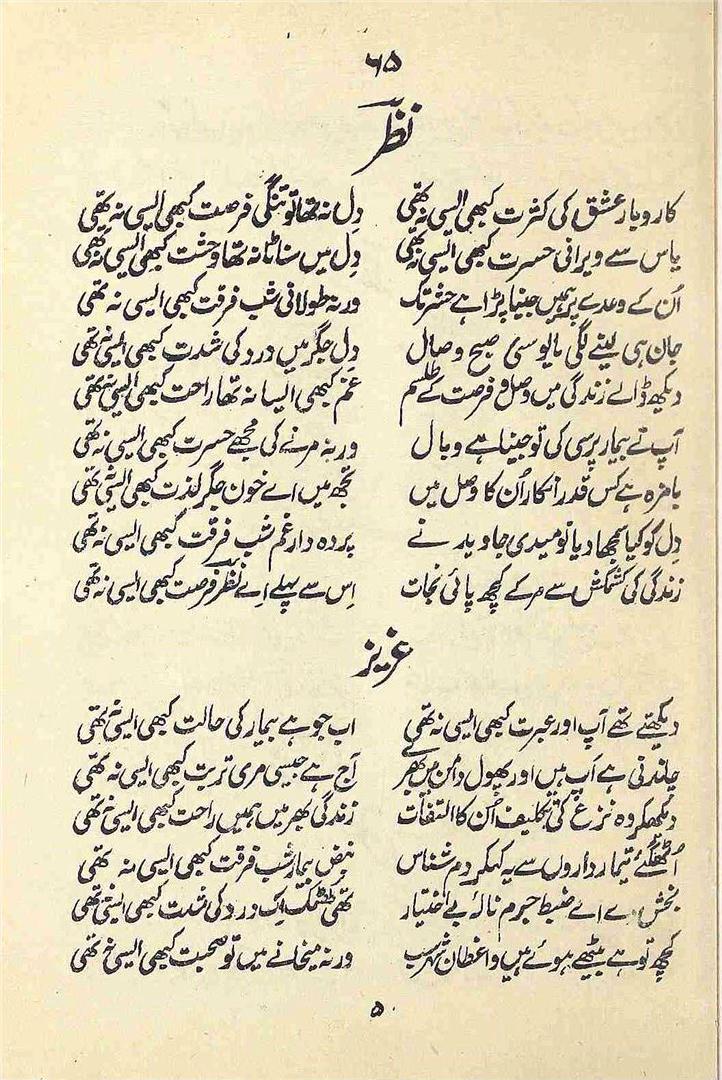 ۶۵
نظر
کاروبار عشق کی کثرت کبھی ایسی نہ تھی دل نہ تھا تو تنگی فرصت کبھی ایسی نہ تھی
یاس سے ویرانی حسرت کبھی ایسی نہ تھی دل میں سناٹا نہ تھا وحشت کبھی ایسی نہ تھی
اُن کے وعدے پر ہمیں جینا پڑا ہے حشر تک ورنہ طولانی شب فرقت کبھی ایسی نہ تھی
جان ہی لینے لگی مایوسئ صبح وصال دل جگر میں درد کی شدت کبھی ایسی نہ تھی
دیکھ ڈالے زندگی میں وصل و فرصت کے طلسم غم کبھی ایسا نہ تھا راحت کبھی ایسی نہ تھی
آپ نے بیمار پرسی کی تو جینا ہے وبال ورنہ مرنے کی مجھے حسرت کبھی ایسی نہ تھی
بامزہ ہے کس قدر انکار اُن کا وصل میں تجھ میں اے خون جگر لذت کبھی ایسی نہ تھی
دل کو کیا سمجھا دیا نومیدی جاوید نے پردہ دار غم شب فرقت کبھی ایسی نہ تھی
زندگی کی کشمکش سے مر کے کچھ پائی نجات اس سے پہلے اے نظر فرصت کبھی ایسی نہ تھی
عزیز
دیکھتے تھے آپ اور عبرت کبھی ایسی نہ تھی اب جو ہے بیمار کی حالت کبھی ایسی نہ تھی
چاندنی ہے آپ ہیں اور پھول دامن میں بھرے آج ہے جیسی مری تربت کبھی ایسی نہ تھی
دیکھکر وہ نزع کی تکلیف اُن کا التفات زندگی بھر میں ہمیں راحت کبھی ایسی نہ تھی
اُٹھ گئے تیمار داروں سے یہ کہکر دم شناس نبض بیمار شب فرقت کبھی ایسی نہ تھی
بخش دے اے ضبط جرم نالۂ بے اختیار تھی چمک اک درد کی شدت کبھی ایسی نہ تھی
کچھ تو ہے بیٹھے ہوئے ہیں واعظان شہر سب ورنہ میخانے میں تو صحبت کبھی ایسی نہ تھی
۵